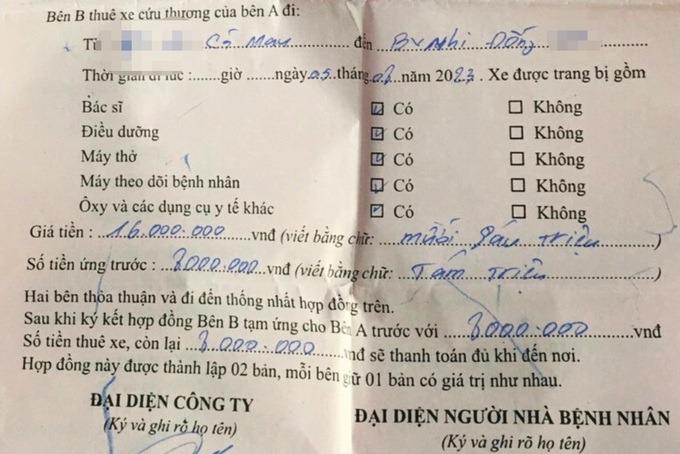 Bên B thuê xe cứu thương của bên A đi:
Từ Cà Mau đến BV Nhi Đồng
Thời gian đi lúc :......giờ ......ngày 05 tháng 02 năm 2023 . Xe được trang bị gồm
Bác sĩ ☑ Có ☐ Không
Điều dưỡng ☑ Có ☐ Không
Máy thở ☑ Có ☐ Không
Máy theo dõi bệnh nhân ☑ Có ☐ Không
Ôxy và các dụng cụ y tế khác ☑ Có ☐ Không
Giá tiền : 16.000.000 vnđ (viết bằng chữ: mười sáu triệu )
Số tiền ứng trước : 8000.000 vnđ (viết bằng chữ: Tám triệu )
Hai bên thỏa thuận và đi đến thống nhất hợp đồng trên.
Sau khi ký kết hợp đồng Bên B tạm ứng cho Bên A trước với 8000.000 vnđ
Số tiền thuê xe, còn lại 8.000.000 vnđ sẽ thanh toán đủ khi đến nơi.
Hợp đồng này được thành lập 02 bản, mỗi bên giữ 01 bản có giá trị như nhau.
ĐẠI DIỆN CÔNG TY ĐẠI DIỆN NGƯỜI NHÀ BỆNH NHÂN
(Ký và ghi rõ họ tên) (Ký và ghi rõ họ tên)